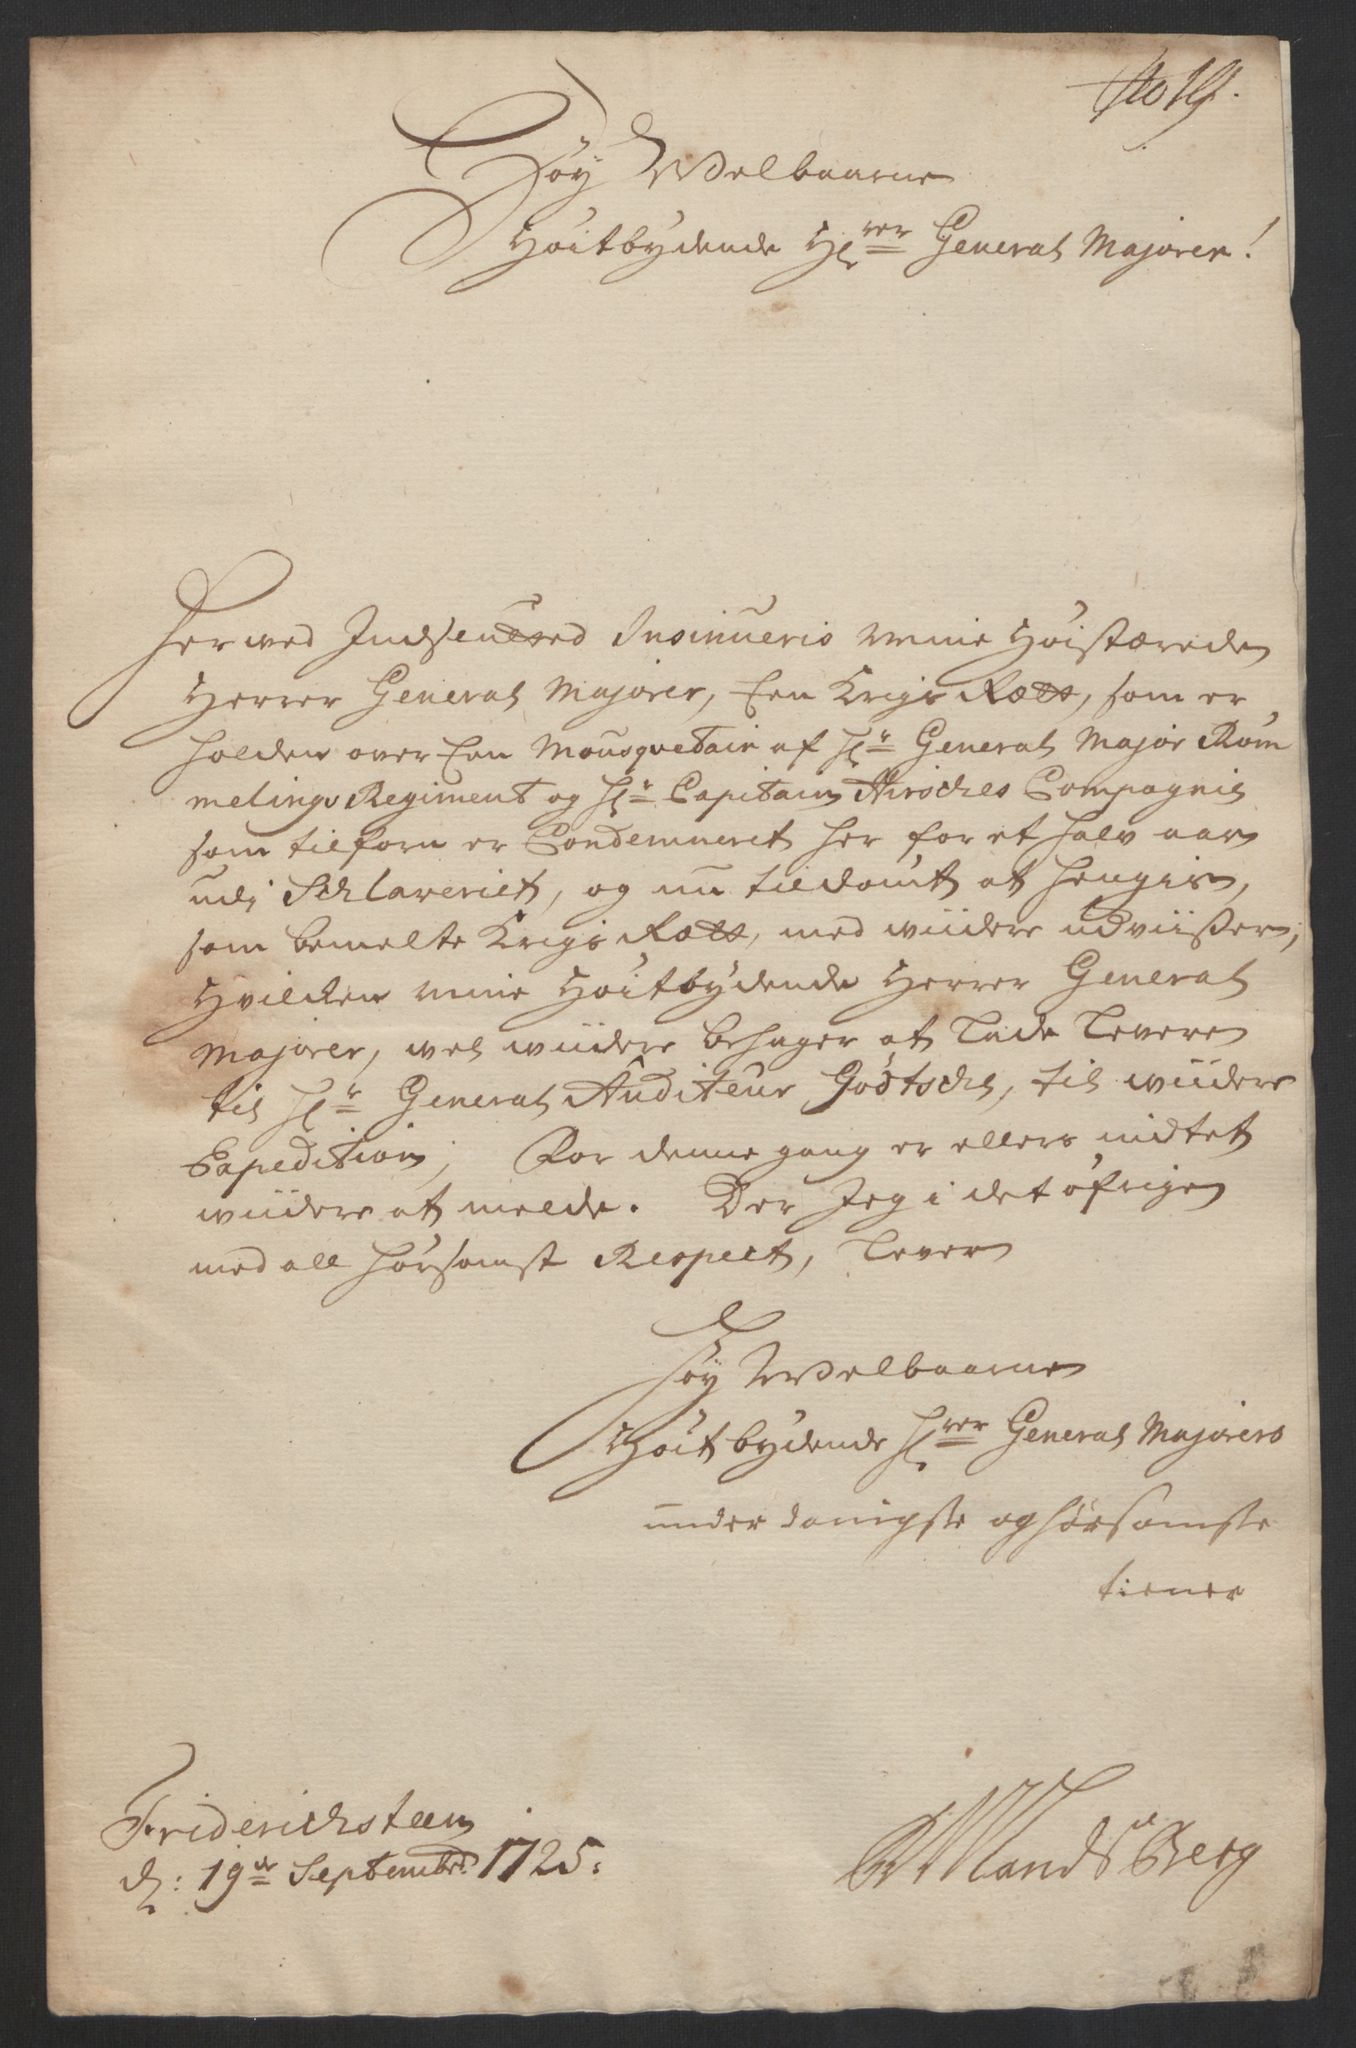 No 19.
Høy Welbaarne
Høitbydende Hrer General Majorer!
Herved Indsendted Insinueris mine Høistærede
Herrer General Majorer, Een Krigs Rætt, som er
holden over Een Mousquetair af Hr General Major Rom
melings Regiment og Hr Capitain Hirsches Compagnie
som tilforn er Condemneret her for et halv aar
udi Schlaveriet, og nu tildømt at hengis,
som bemelte Krigs Rætt, med wiidere udviisser,
Hvilcken mine Høitbydende Herrer General
Majorer, wel wiidere behager at lade levere
til Hr General Auditeur Götsche, til wiidere
Expedition; For denne gang er ellers indtet
wiidere at melde. Der Jeg i det øfrige
med all hørsomst Respect, lever
Høy Welbaarne
Høit bydende Hrer General Majorers
under danigste og hørsomste
tiener
Friderichsteen
d: 19de Septembr: 1725:
Landsberg